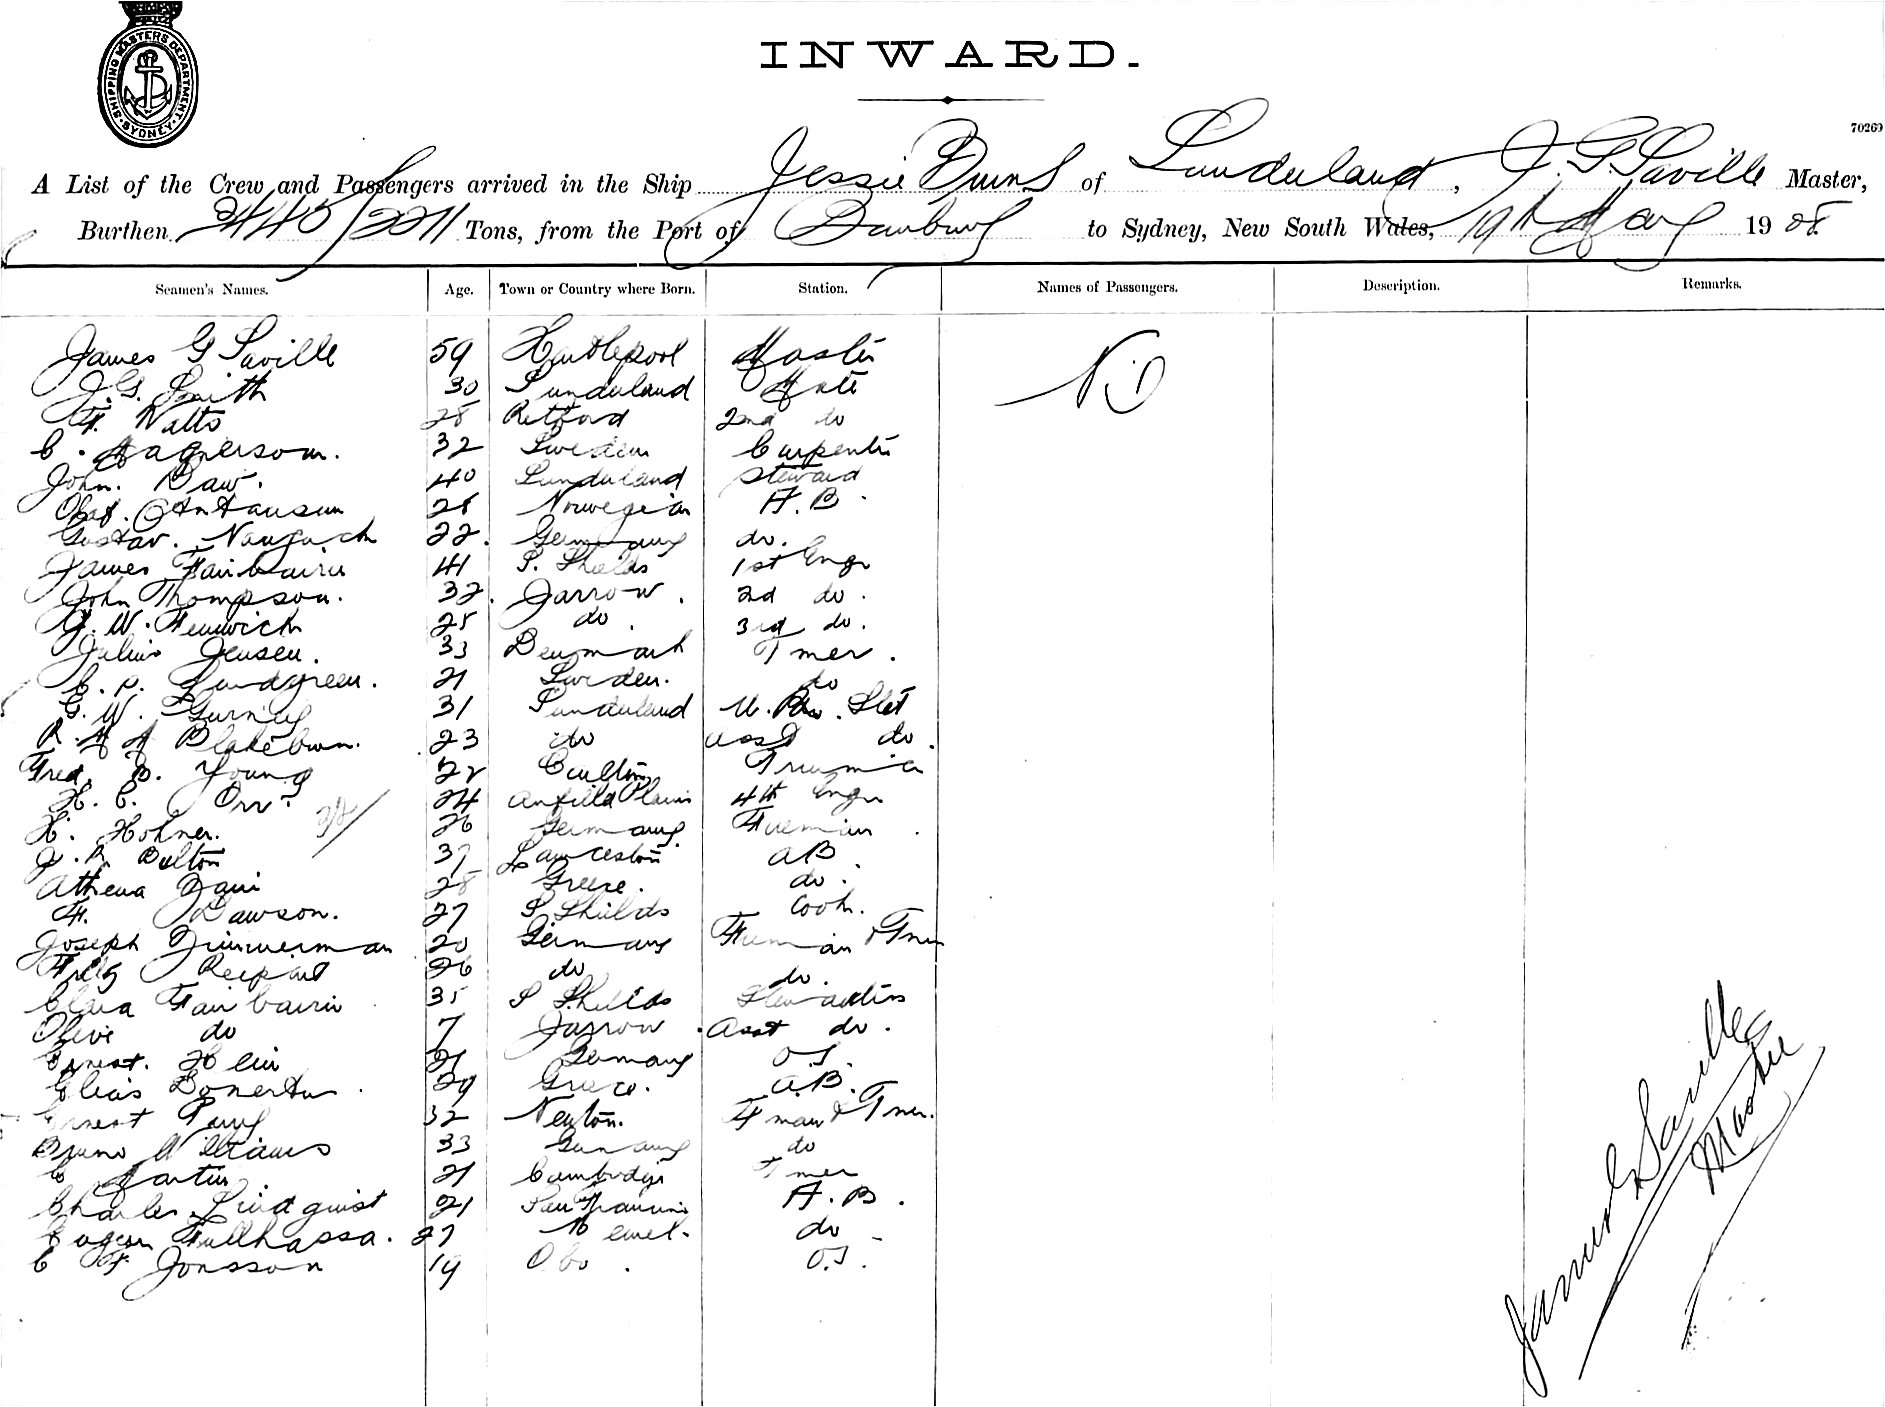 SHIPPING MASTERS DEPARTMENT. SYDNEY
INWARD.
70269
A List of the Crew and Passengers arrived in the Ship Jessie of Sunderland, J. G. Saville Master,
Burthen Tons, from the Port of to Sydney, New South Wales, 19th May 1908
Seamen's Names. Age. Town or Country where Born. Station. Names of Passengers. Description. Remarks.
James G Saville 59 Hartlepool Master Nil
J. G. Smith 30 Sunderland Mate
F. Watts 28 Retford 2nd do
C. 32 Sweden Carpenter
John. Daw. 40 Sunderland Steward
28 Norwegian A.B.
Gustav. 22. Germany do.
James Fairbairn 41 S. Shields 1st Engr
John Thompson. 32. Jarrow. 2d do.
J. W. Fenwick 25 do. 3rd do.
Julius Jensen. 33 Denmark Tmer.
C. P. Lundgreen. 21 Sweden. do
G. W. Gurney 31 Sunderland
Blakeburn. 23 do Asst do.
Fred. B. Young 22 Fireman
H. C. Orr. 24 Anfield Plain 4th Engr
H. Hohner. 26 Germany. Fireman
J. R. Bulton 37 Launceston AB
Athena 28 Greece. do.
F. Dawson. 27 S Shields Cook.
Joseph Zimmerman 20 Germany Fireman & Tmer
26 do do.
Clara Fairbairn 35 S Shields Stewardess
Olive do 7 Jarrow. Asst do.
Ernest. Hein 21 Germany O.S.
Elias 29 Greece. A.B.
Ernest 32 Newton. Fman & Tmer.
Bruno Williams 33 Germany do
C Martin 21 Cambridge Tmer
Charles Lindquist 21 San Francisco A.B.
27 Memel. do
C F Jonsson 19 Obo. O.S.
James G Saville
Master